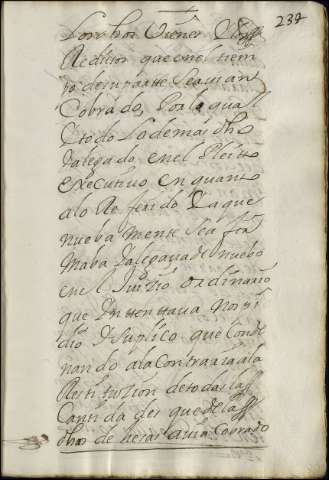 237
Reditos que en el tiem
po de su parte se auian
Cobrado, Por la qual
Y todo lo demas dho
Y alegado, en el Pleitto
executiuo en quanto
a lo Referido Y a que
nueba mente se afir
maba Y alegaua de nuebo
en el Juiçio ordinario
que Yntentaua Nos pi
dio Y suplico que Conde
nando a la contraria a la
Restituzion de todas las
Cantidades que de las
dhas de heras auia Cobrado